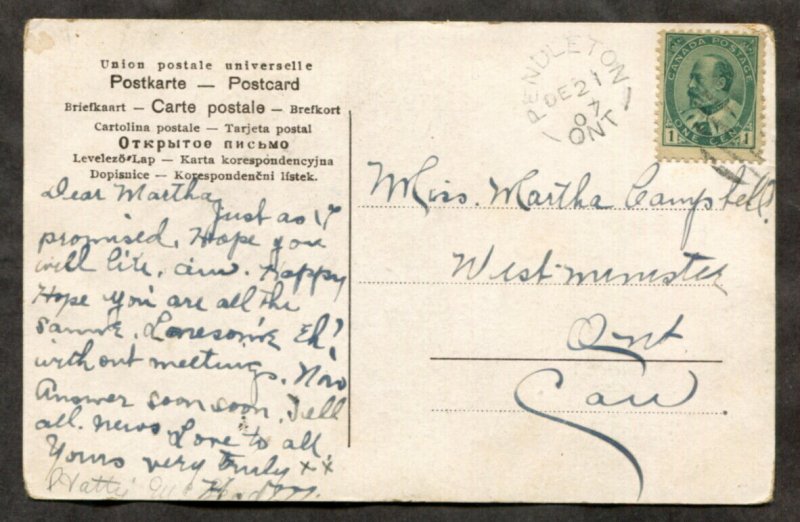 Union postale universelle
Postkarte — Postcard
Briefkaart — Carte postale — Brefkort
Cartolina postale — Tarjeta postal
Открытое письмо
Levelező-Lap — Karta korespondencyjna
Dopisnice — Korespondenční lístek.
PENDLETON
DE 21
07
ONT
CANADA POSTAGE
1 ONE CENT 1
Dear Martha
Just as I
promised. Hope you
will like. am. Happy
Hope you are all the
same. Lonesome Eh?
without meetings. Now
Answer soon soon. Tell
all. news Love to all
Yours very truly xx
Hattie
Miss. Martha Campbell.
Westminister
Ont.
Can